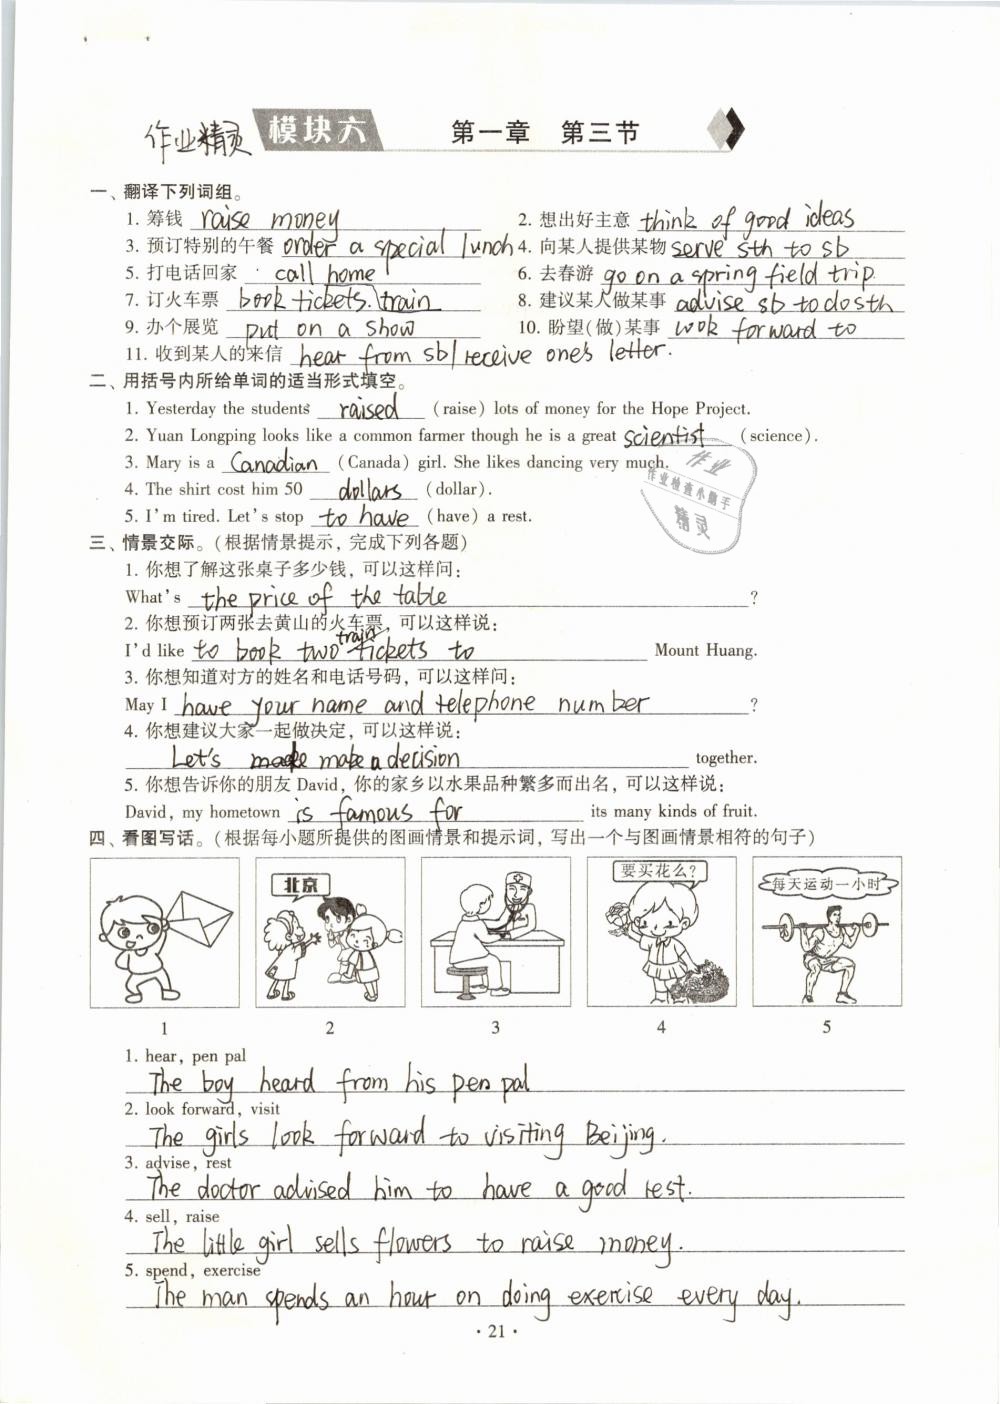 作业精灵 模块六 第一章 第三节
一、翻译下列词组。
1. 筹钱 raise money 2. 想出好主意 think of good ideas
3. 预订特别的午餐 order a special lunch 4. 向某人提供某物 serve sth to sb
5. 打电话回家 call home 6. 去春游 go on a spring field trip
7. 订火车票 book tickets. train 8. 建议某人做某事 advise sb to do sth
9. 办个展览 put on a show 10. 盼望(做)某事 look forward to
11. 收到某人的来信 hear from sb/receive one's letter.
二、用括号内所给单词的适当形式填空。
1. Yesterday the students raised (raise) lots of money for the Hope Project.
2. Yuan Longping looks like a common farmer though he is a great scientist (science).
3. Mary is a Canadian (Canada) girl. She likes dancing very much.
4. The shirt cost him 50 dollars (dollar).
5. I'm tired. Let's stop to have (have) a rest.
作业
作业检查小帮手
精灵
三、情景交际。(根据情景提示，完成下列各题)
1. 你想了解这张桌子多少钱，可以这样问：
What's the price of the table ?
2. 你想预订两张去黄山的火车票，可以这样说：
I'd like to book two train tickets to Mount Huang.
3. 你想知道对方的姓名和电话号码，可以这样问：
May I have your name and telephone number ?
4. 你想建议大家一起做决定，可以这样说：
Let's make a decision together.
5. 你想告诉你的朋友 David，你的家乡以水果品种繁多而出名，可以这样说：
David, my hometown is famous for its many kinds of fruit.
四、看图写话。(根据每小题所提供的图画情景和提示词，写出一个与图画情景相符的句子)
北京
要买花么？
每天运动一小时
1 2 3 4 5
1. hear, pen pal
The boy heard from his pen pal
2. look forward, visit
The girls look forward to visiting Beijing.
3. advise, rest
The doctor advised him to have a good rest.
4. sell, raise
The little girl sells flowers to raise money.
5. spend, exercise
The man spends an hour on doing exercise every day.
· 21 ·